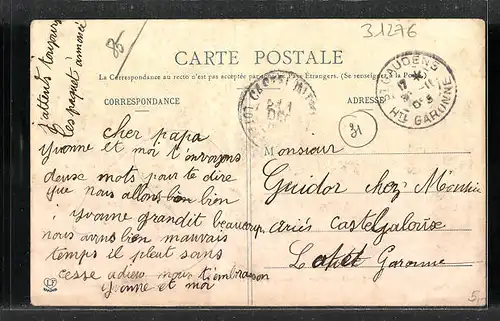 31276
85
CARTE POSTALE
La Correspondance au recto n'est pas acceptée par Étrangers. (Se renseigner
CORRESPONDANCE
ADRESSE
ST GAUDENS
Hte GARONNE
31
j'attends toujours
les paquet annoncé
Cher papa
Yvonne et moi t'envoyons
deuse mots pour te dire
que nous allons bien bien
Yvonne grandit beaucoup
nous avons bien mauvais
temps il pleut sans
cesse adieu nous t'embrasson
Yvonne et moi
Monsieur
Guidor chez M'ousie
ariés Castelgalouse
Lot et Garonne
5,-